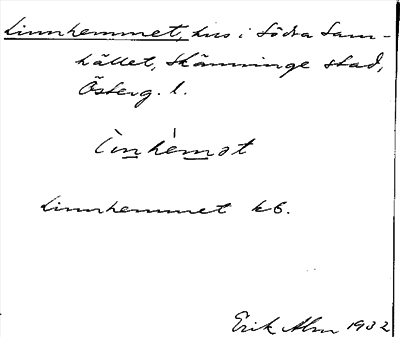 Linnhemmet, hus i Södra Sam-
hället, Skänninge stad,
Österg. l.
Linnhemmet kb.
Erik Alm 1932